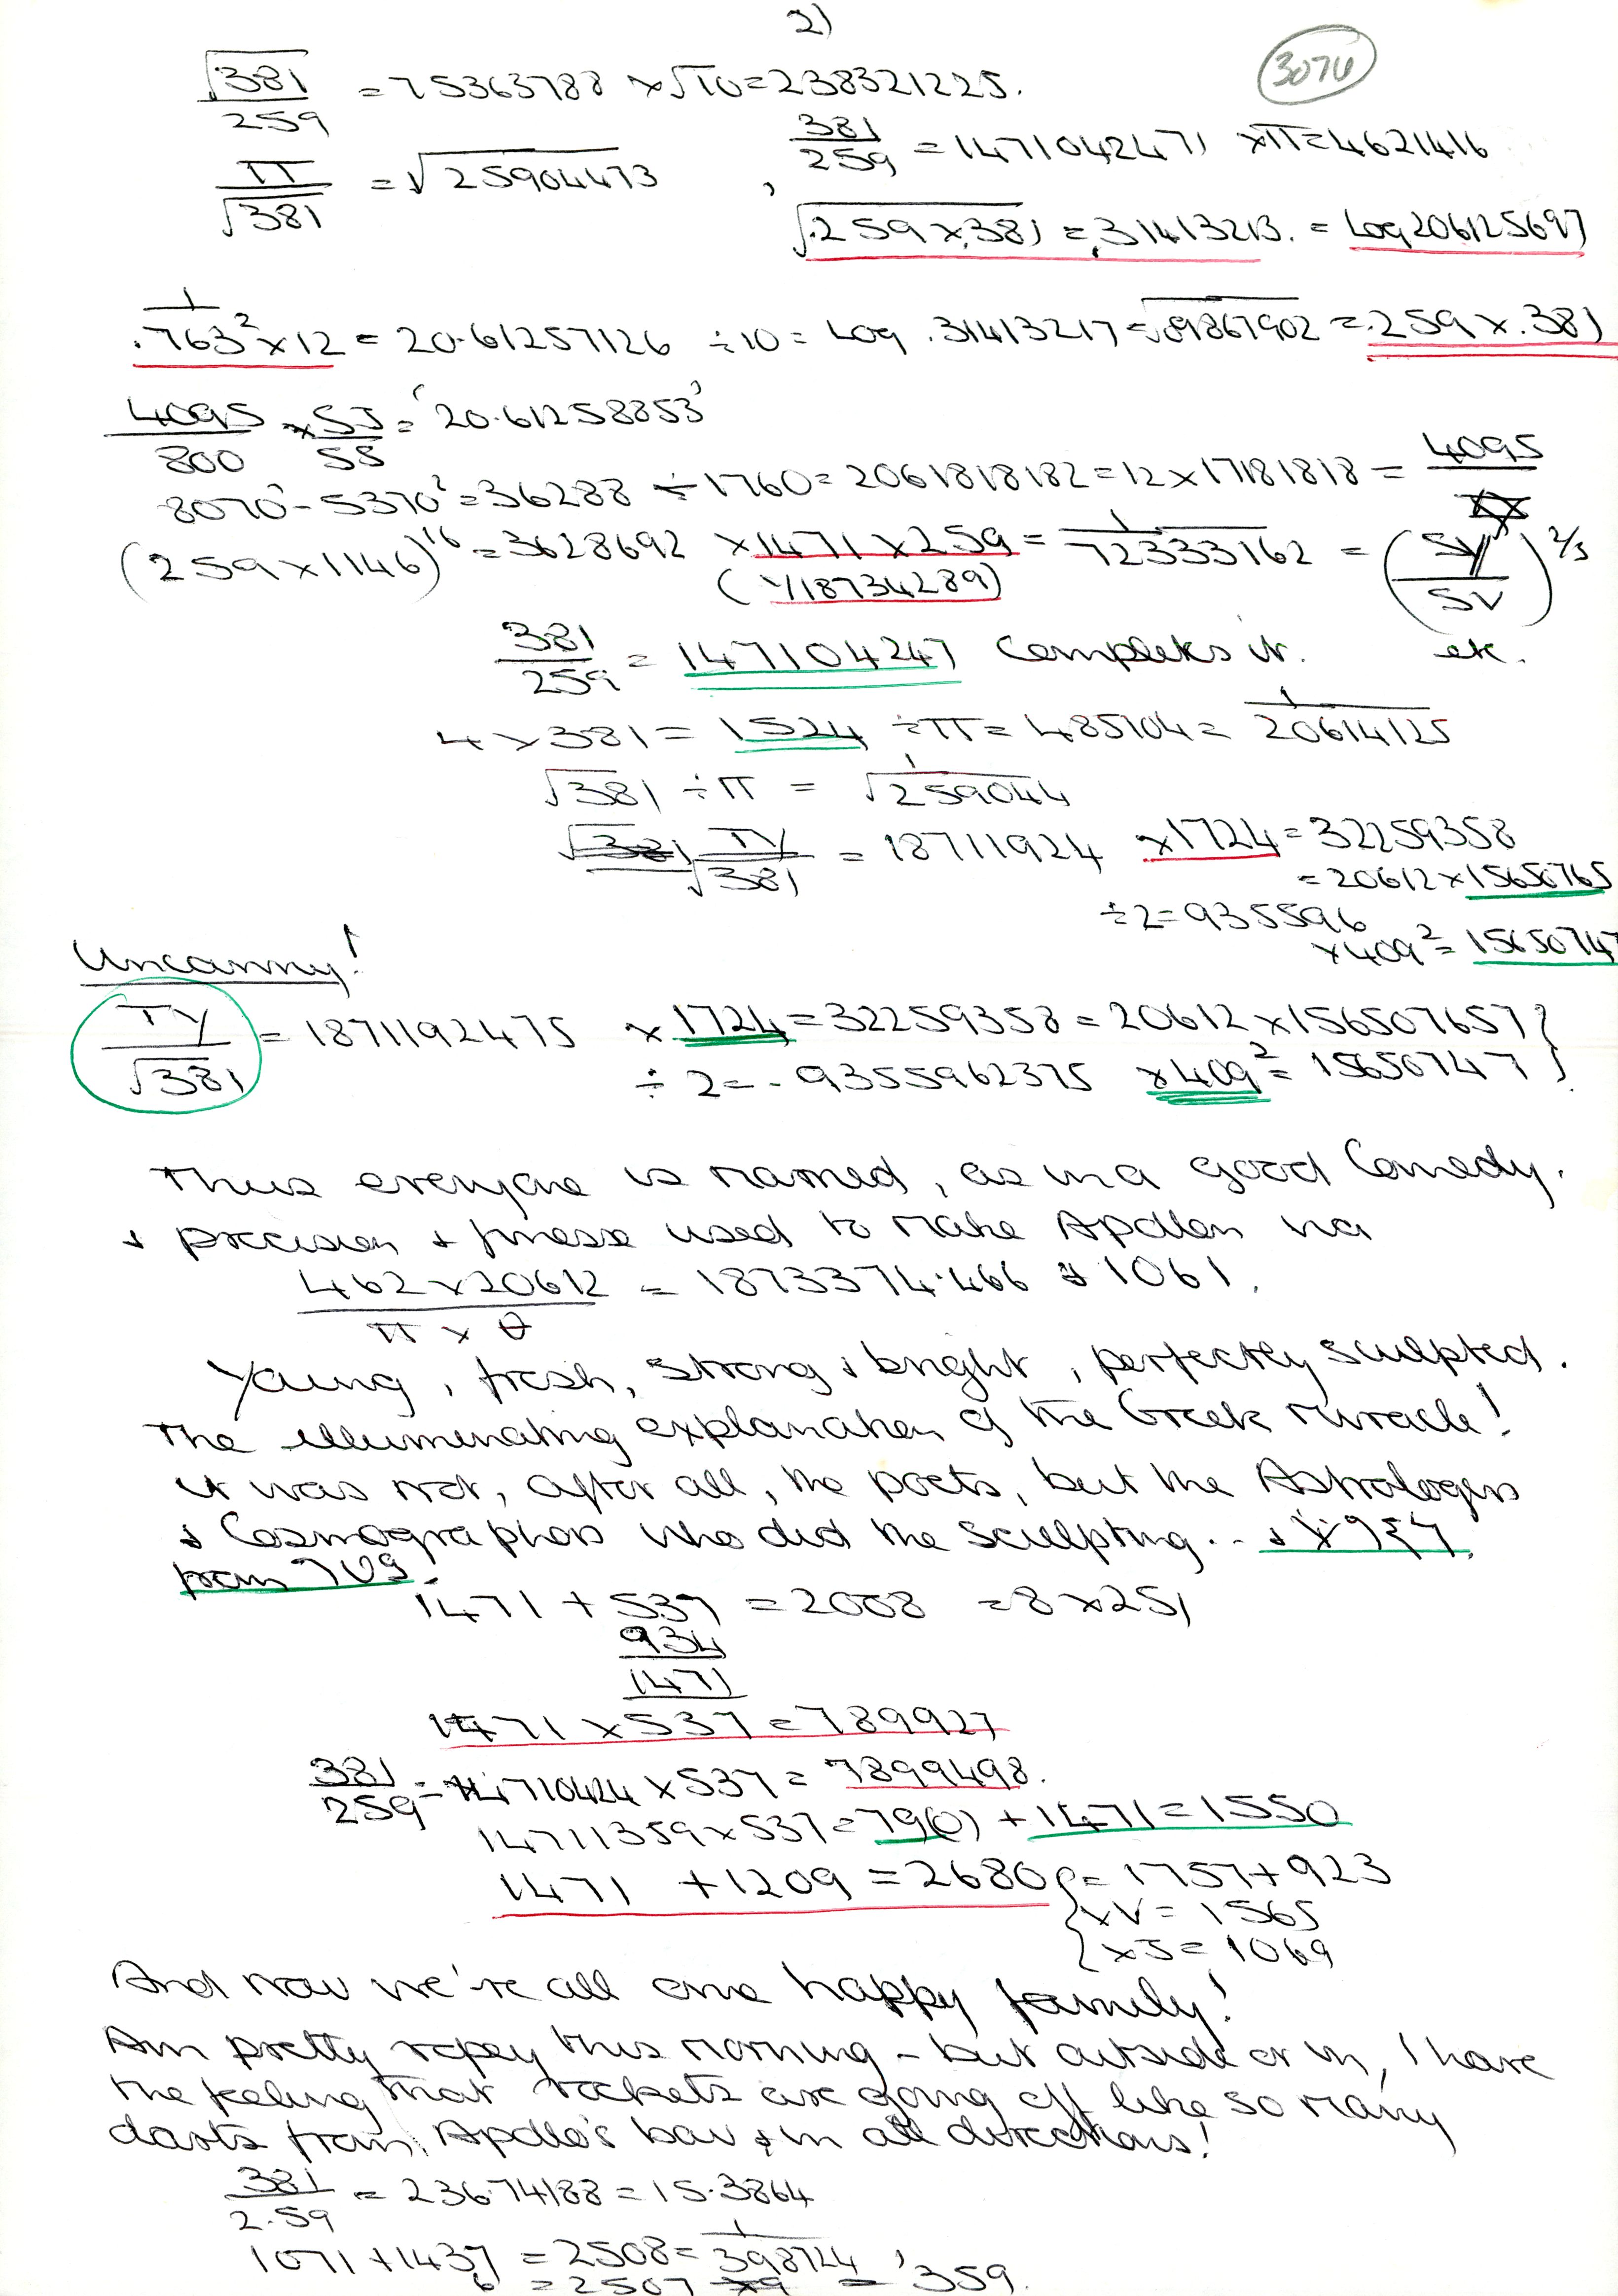 2)
3074
√381/259 = 75363788 × √10 = 238321225.
381/259 = 1471042471 × π = 4621416
π/√381 = √25904473 ,
√.259 × .381 = .31413213. = Log 206125697
1/.763² × 12 = 20.61257126 ÷ 10 = Log .31413217 = √09867902 = .259 × .381
4095/800 × SJ/SS = '20.61258853'
8070² - 5370² = 36288 ÷ 1760 = 2061818182 = 12 × 17181818 = 4095
(259 × 1146)^16 = 3628692 × 1471 × 259 = 1/72333162 = (SY/SV)^2/3
(1/18734289)
381/259 = 147104247 Completes it. etc.
4 × 381 = 1524 ÷ π = 485104 = 1/20614125
√381 ÷ π = 1/√259044
TY/√381 = 18711924 × 1724 = 32259358
= 20612 × 15650765
÷ 2 = 935596
× 409² = 15650747
Uncanny!
TY/√381 = 1871192475 × 1724 = 32259358 = 20612 × 156507657 }
÷ 2 = .9355962375 × 409² = 15650747 }
Thus everyone is named, as in a good Comedy.
& precision & finesse used to make Apollon via
462 × 20612/π × θ = 1873374.466 & 1061.
Young, fresh, strong & bright, perfectly sculpted.
The illuminating explanation of the Greek miracle!
it was not, after all, the poets, but the Astrologers
& Cosmographers who did the sculpting...
from 709.
1471 + 537 = 2008 = 8 × 251
934
1471
1471 × 537 = 789927
381/259 = 14710424 × 537 = 7899498.
14711359 × 537 = 79(0) + 1471 = 1550
1471 + 1209 = 2680 { = 1757 + 923
{ × V = 1565
{ × J = 1069
And now we're all one happy family!
Am pretty ropey this morning - but outside or in, I have
the feeling that rockets are going off like so many
darts from Apollo's bow & in all directions!
381/2.59 = 23674188 = 15.3864
1071 + 1437 = 2508 = 1/398724 = '359.
6 = 2507